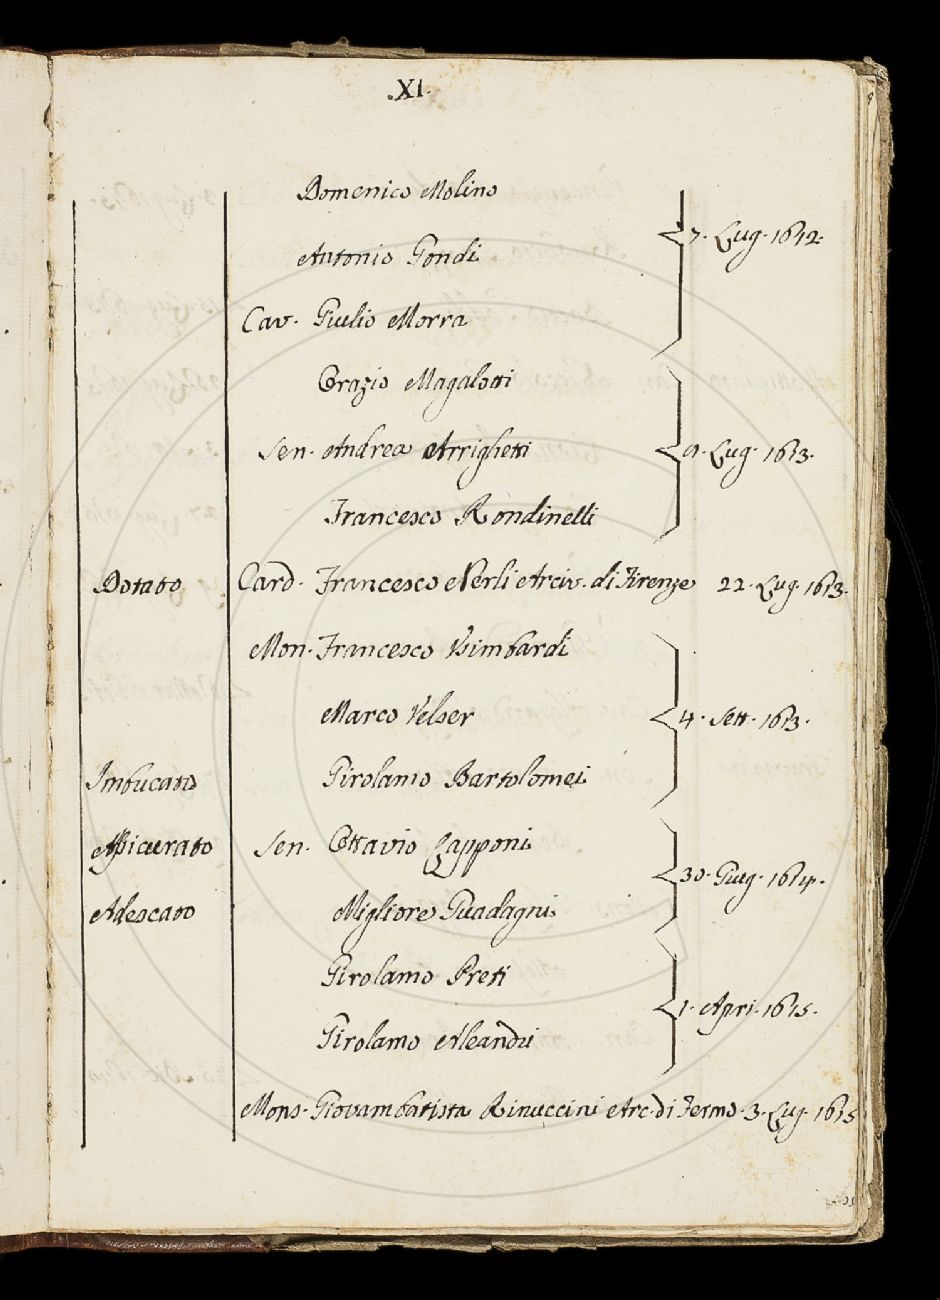 .XI.
Domenico Molino
Antonio Gondi
7. Lug. 1612.
Cav. Giulio Morra
Orazio Magalotti
Sen. Andrea Arrighetti
9. Lug. 1613.
Francesco Rondinelli
Dotato Card. Francesco Nerli Arciv. di Firenze 22. Lug. 1613.
Mon. Francesco Usimbardi
Marco Velser
4. Sett. 1613.
Imbucato Girolamo Bartolomei
Assicurato Sen. Ottavio Capponi
30. Giug. 1614.
Adescato Migliore Guadagni
Girolamo Preti
1. Apri. 1615.
Girolamo Aleandri
Mons. Giovambatista Rinuccini Arc. di Fermo. 3. Lug. 1615